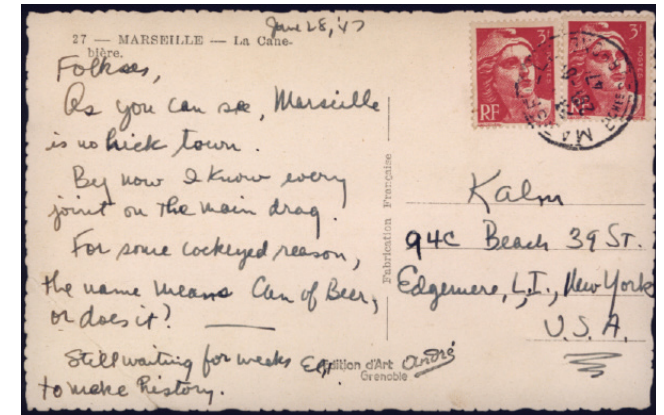 June 28, '47
27 — MARSEILLE — La Cane-
bière.
Folkses,
As you can see, Marseille
is no hick town.
By now I know every
joint on the main drag.
For some cockeyed reason,
the name means Can of Beer,
or does it?
Still waiting for weeks
to make history.
Fabrication Française
Edition d'Art André
Grenoble
3f
3f
RF
RF
Kalm
94C Beach 39 ST.
Edgemere, L.I., New York
U.S.A.